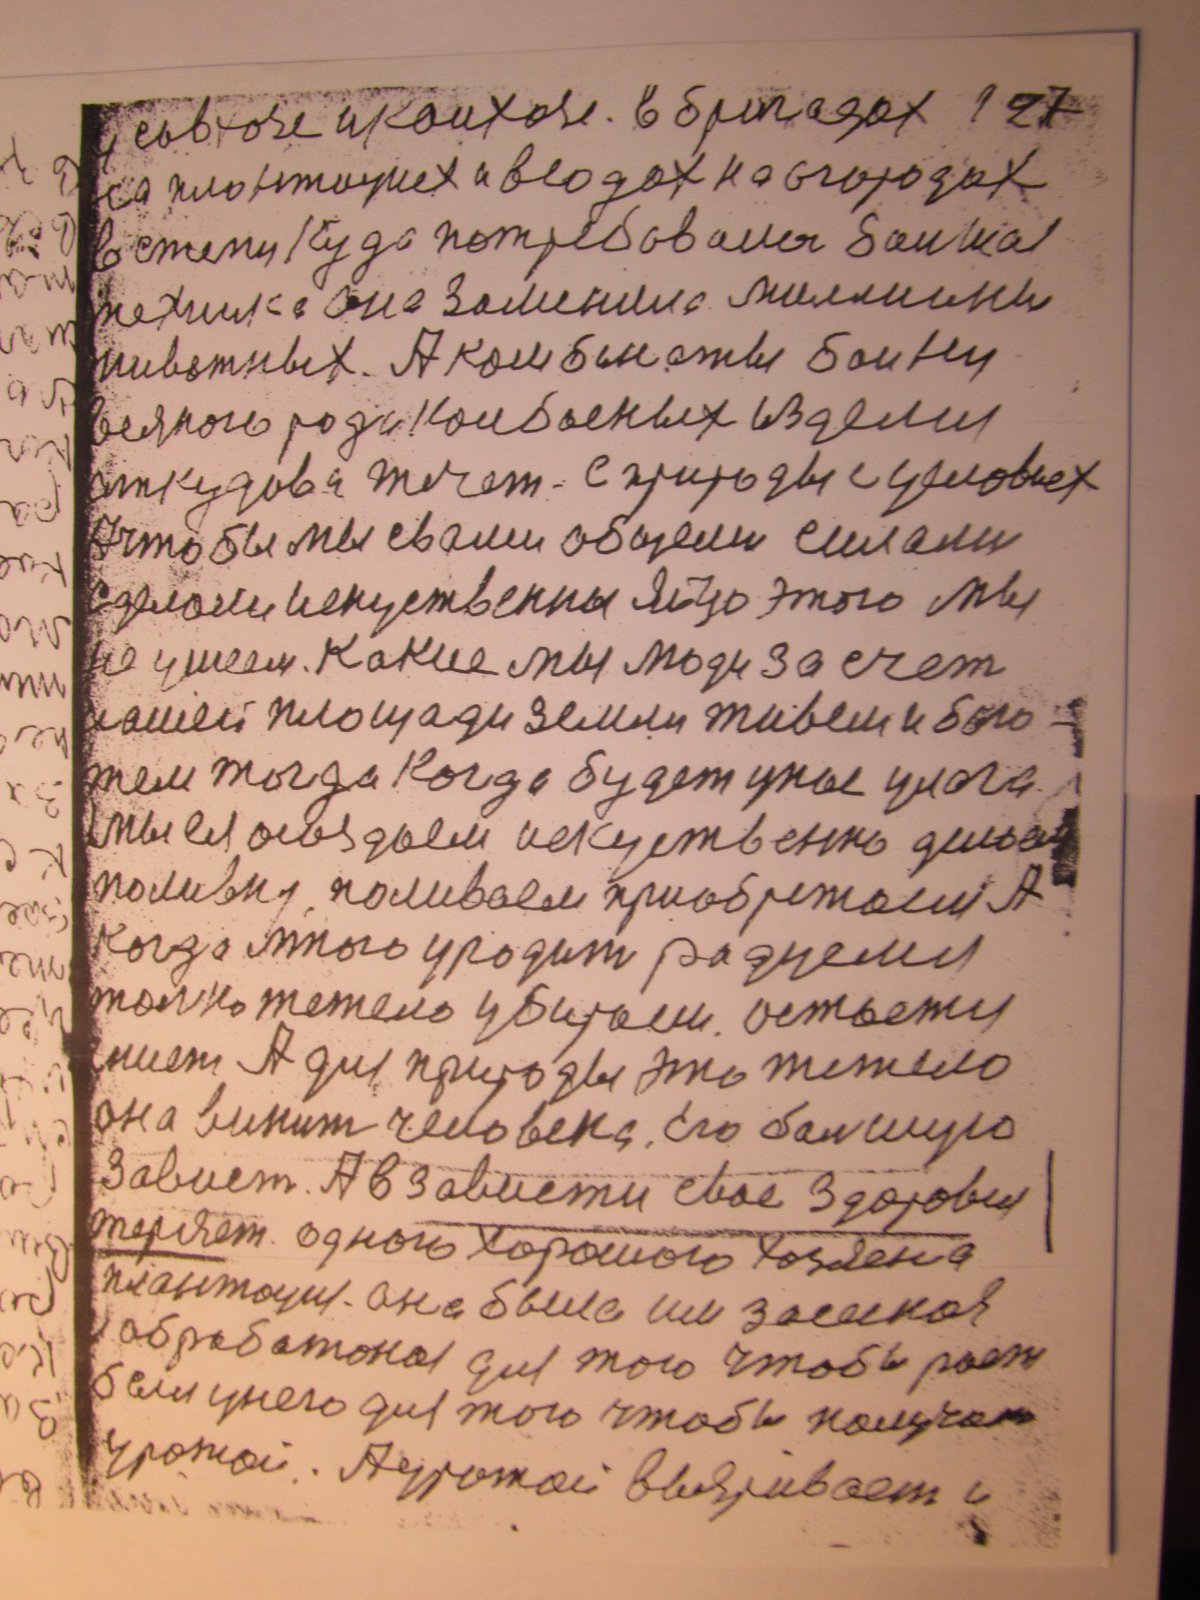 у совхозе и колхозе. в бригадах 127
на плонтацыех и в содах на огородах
в степи куда потребовалися болшая
техника она заменила миллионы
живатных. А комбынаты бойни
всяного рода колбасных изделия
откудова течет. с природы с условиех
А чтобы мы свами общеми силами
сделали искуственны яйцо этого мы
не умеем. Какие мы люди за счет
нашей площади земли живем и бого-
теем тогда когда будет унас улага.
мы ея создаем искуственно делоем
поливку, поливаем приобретаем А
когда много уродит радуемся
толко тежело убираем. остается
А для природы это тежело
она винит человека, его болшую
Зависть. А в Зависти свае Здоровия
теряет. одного хорошого хозяена
плантацыя. она была им засеяная
обработоная для того чтобы расти
было унего для того чтобы получат
урожай. А урожай вызривает и